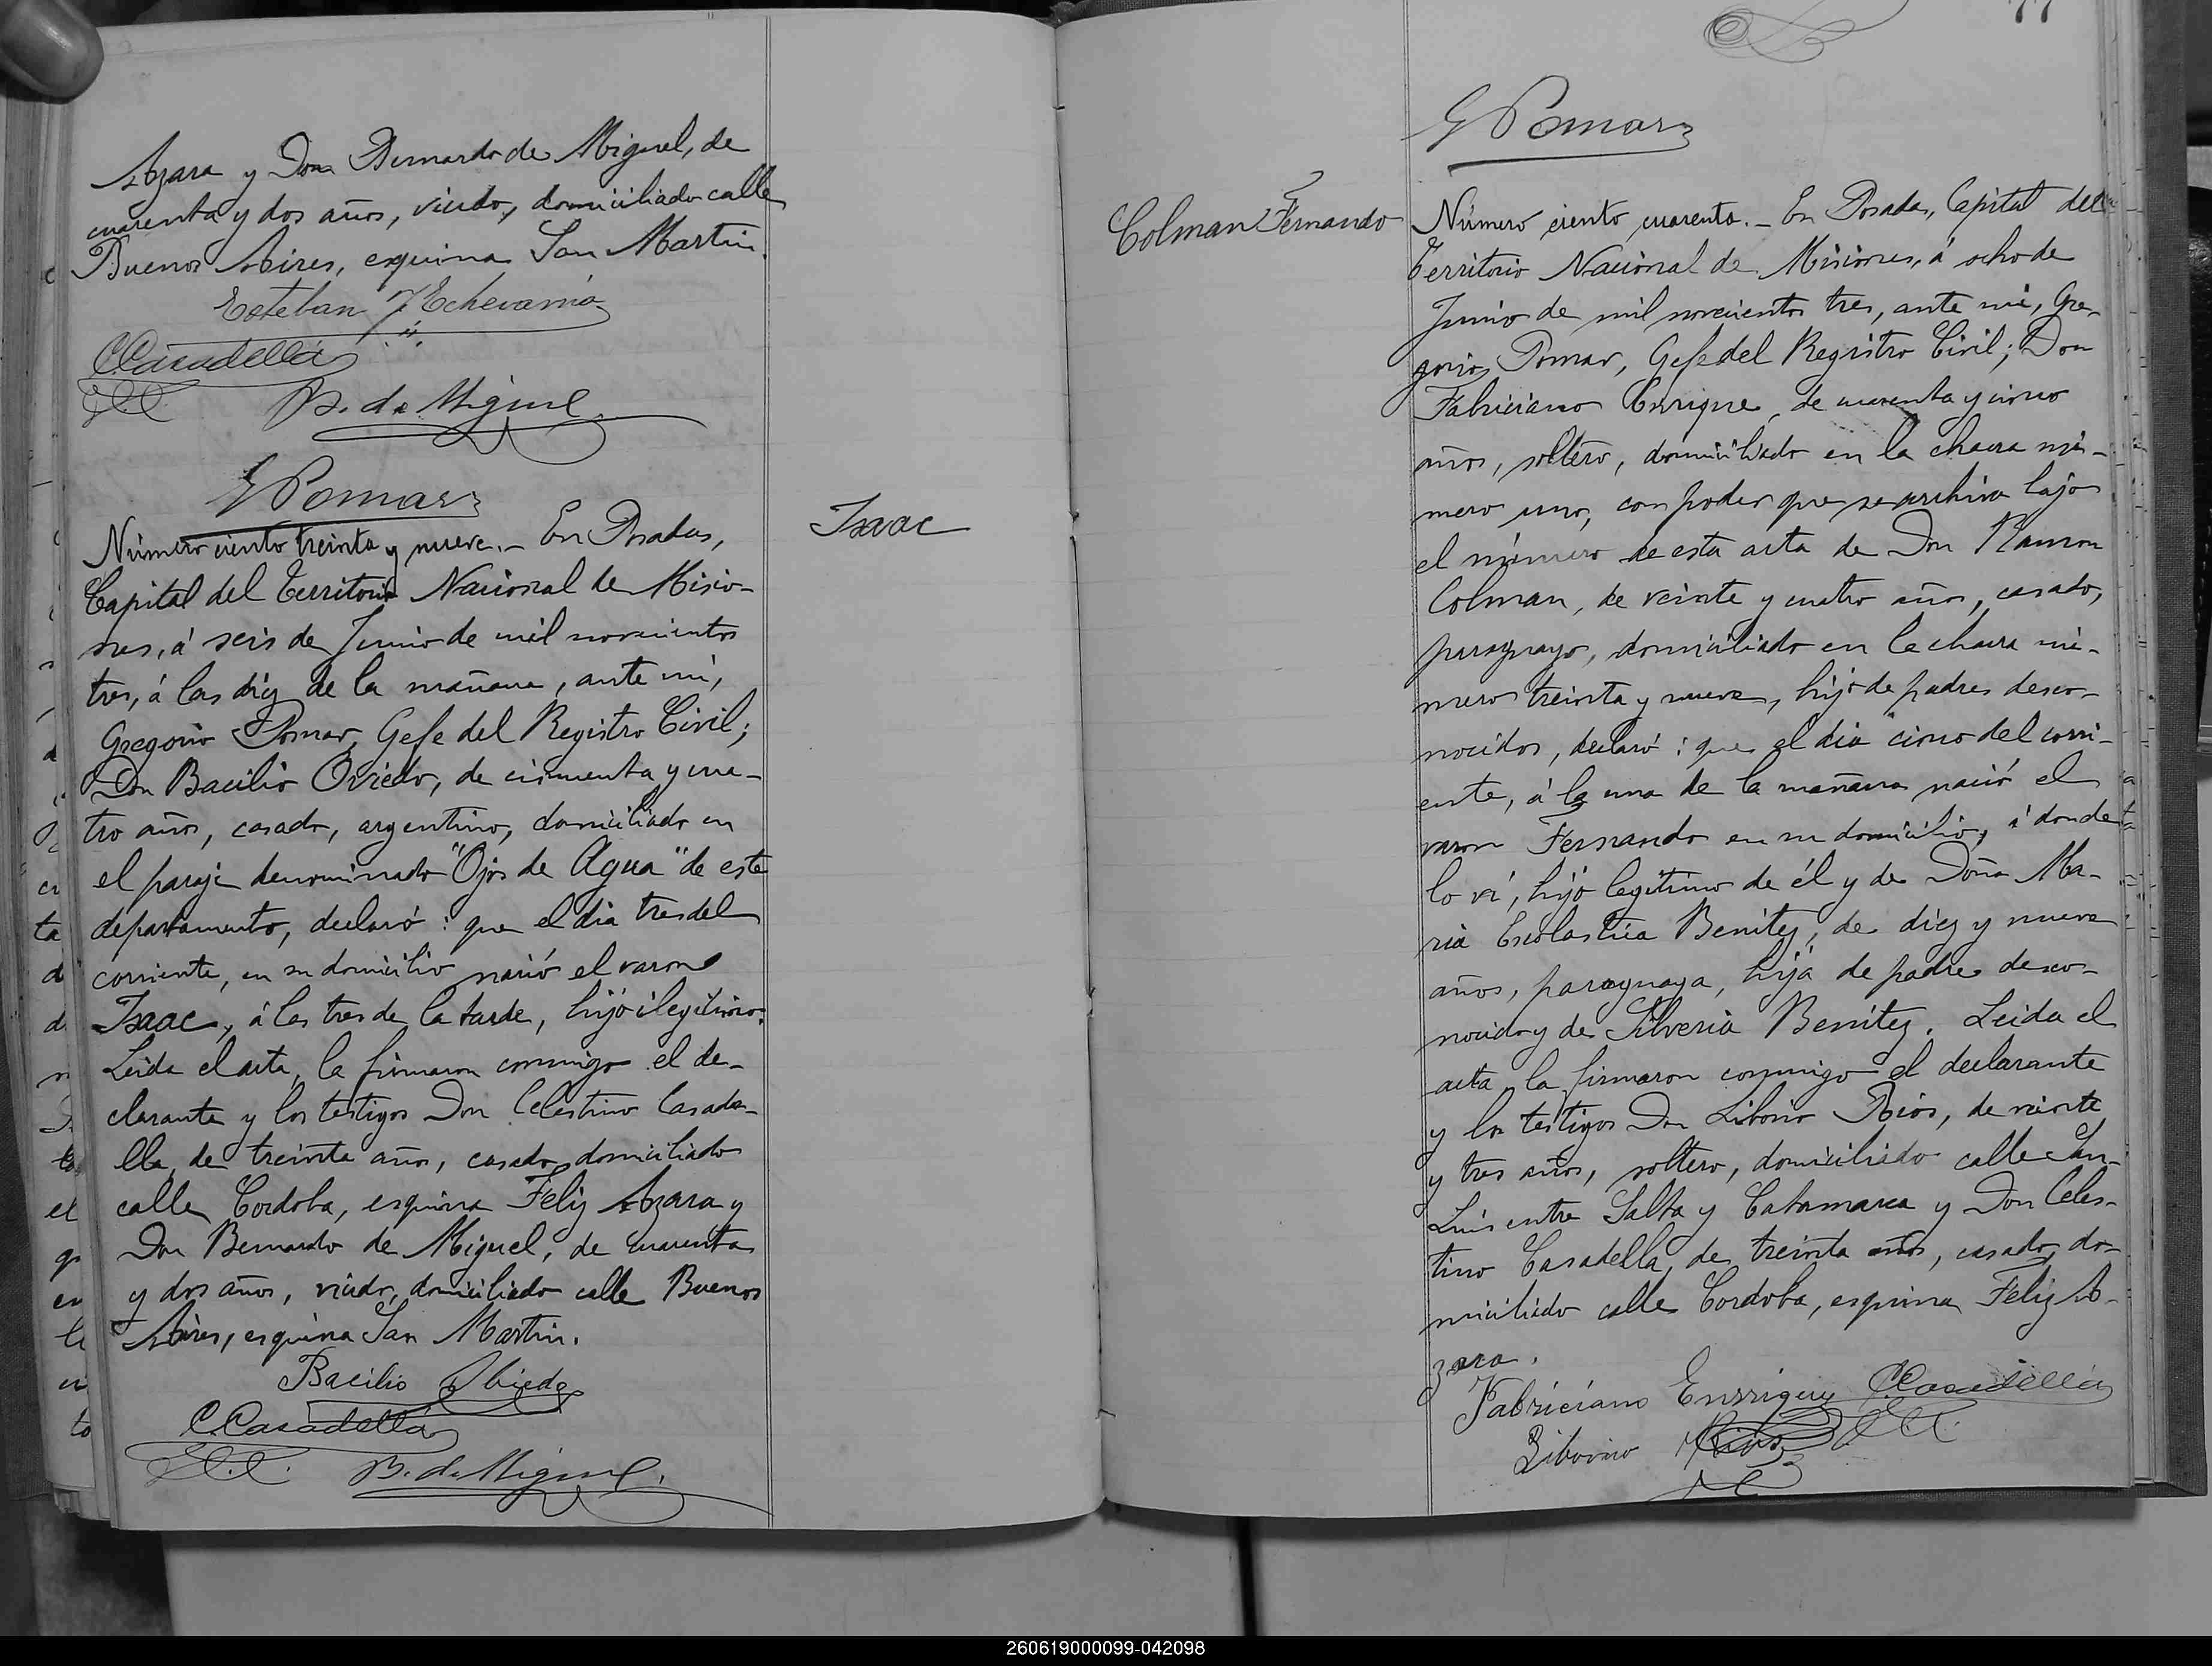 Azara y Don Bernardo de Miguel, de
cuarenta y dos años, viudo, domiciliado calle
Buenos Aires, esquina San Martin.
Esteban J Echevarria
CCasadellá
B. de Miguel
G Pomar
Isaac
Número ciento treinta y nueve.- En Posadas,
Capital del Territorio Nacional de Misio-
nes, á seis de Junio de mil novecientos
tres, á las diez de la mañana, ante mí,
Gregorio Pomar, Gefe del Registro Civil;
Don Bacilio Oviedo, de cincuenta y cua-
tro años, casado, argentino, domiciliado en
el paraje denominado "Ojos de Agua" de este
departamento, declaró: que el dia tres del
corriente, en su domicilio nació el varon
Isaac, á las tres de la tarde, hijo ilegitimo.
Leida el acta, la firmaron conmigo el de-
clarante y los testigos Don Celestino Casade-
lla, de treinta años, casado, domiciliado
calle Cordoba, esquina Feliz Azara y
Don Bernardo de Miguel, de cuarenta
y dos años, viudo, domiciliado calle Buenos
Aires, esquina San Martin.
Bacilio Obiedo
C.Casadellá
B. de Miguel.
77
G Pomar
Colman Fernando
Número ciento cuarenta.- En Posadas, Capital del
Territorio Nacional de Misiones, á ocho de
Junio de mil novecientos tres, ante mí, Gre-
gorio Pomar, Gefe del Registro Civil; Don
Fabriciano Enrique, de cuarenta y cinco
años, soltero, domiciliado en la chacra nú-
mero uno, con poder que se archiva bajo
el número de esta acta de Don Ramon
Colman, de veinte y cuatro años, casado,
paraguayo, domiciliado en la chacra nú-
mero treinta y nueve, hijo de padres desco-
nocidos, declaró: que el dia cinco del corri-
ente, á la una de la mañana nació el
varon Fernando en su domicilio, á donde
lo ví, hijo legitimo de él y de Doña Ma-
ria Escolastica Benitez, de diez y nueve
años, paraguaya, hija de padre desco-
nocido y de Silveria Benitez. Leida el
acta, la firmaron conmigo el declarante
y los testigos Don Liborio Rios, de veinte
y tres años, soltero, domiciliado calle San
Luis entre Salta y Catamarca y Don Celes-
tino Casadella, de treinta años, casado, do-
miciliado calle Cordoba, esquina Feliz A-
zara.
Fabriciano Enrrique CCasadellá
Liborio Rios
260619000099-042098